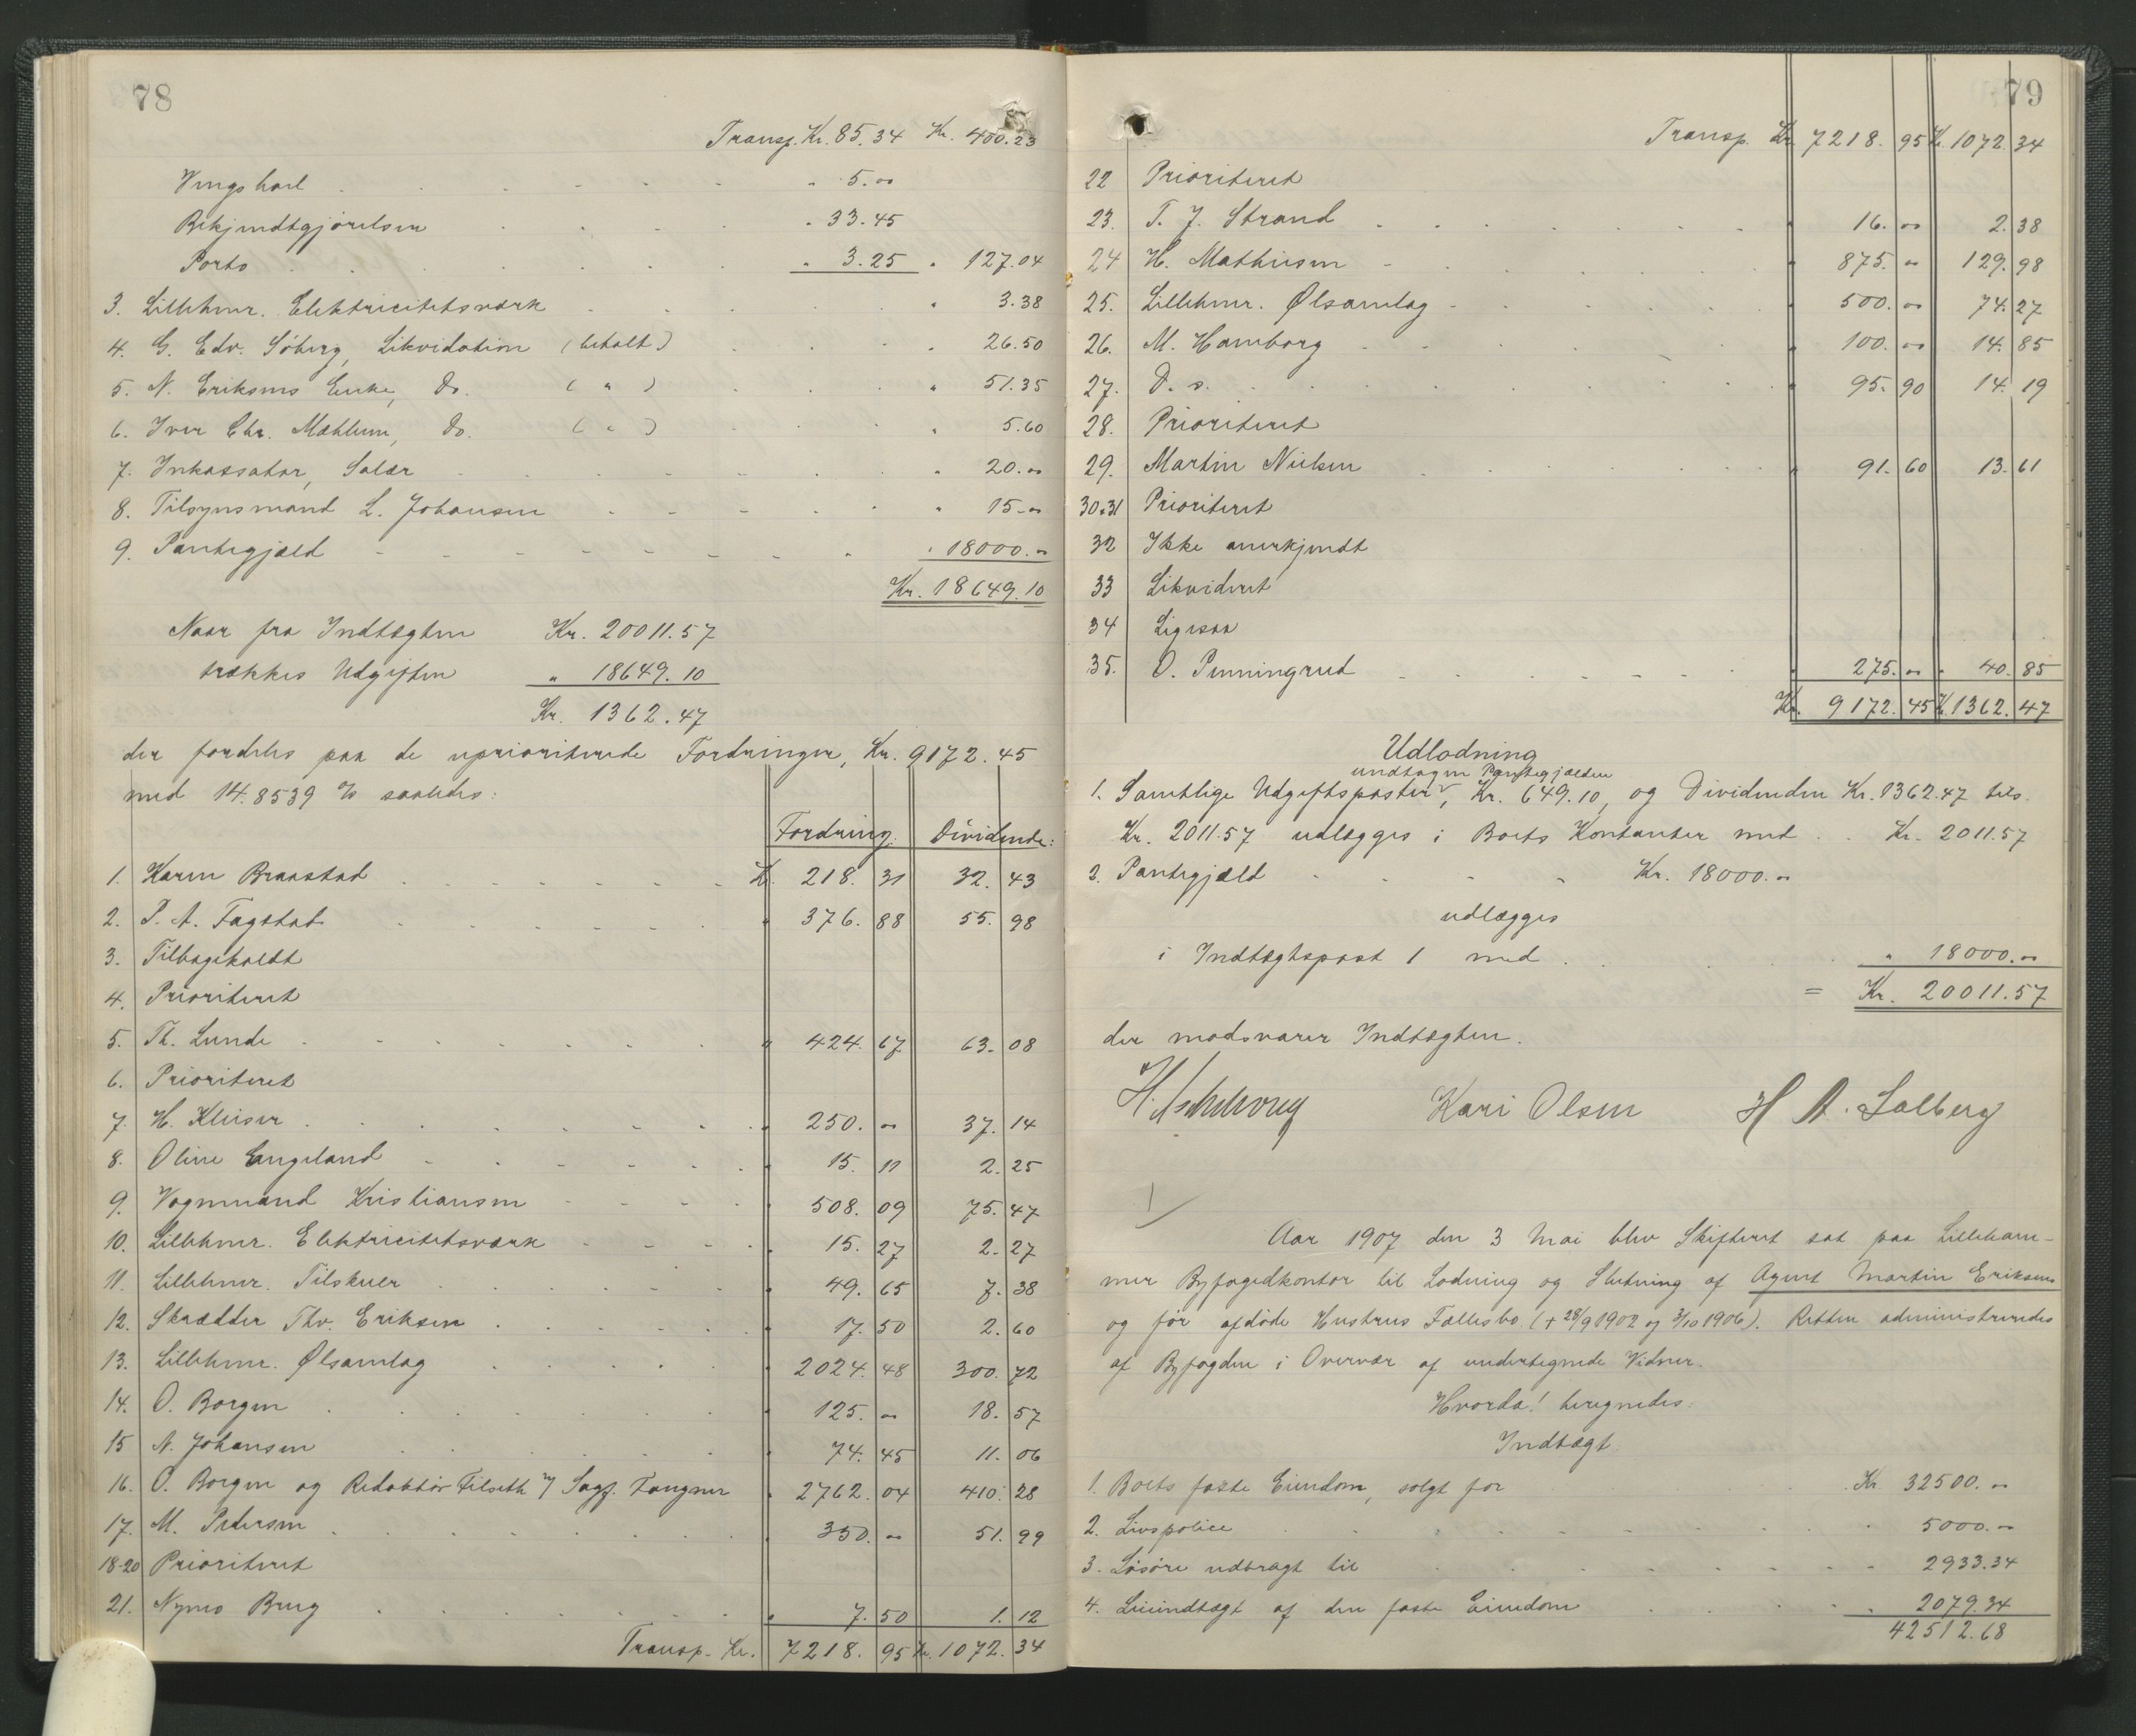 78
Transp. Kr. 85.34 Kr. 400.23
5.00
Bekjendtgjørelsen " 33.45
Porto " 3.25 " 127.04
3. Lillehmr. Elektricitetsværk " 3.38
4. G. Edv. Söberg, Likvidation (betalt) " 26.50
5. N. Eriksens Enke, Do. ( " ) " 51.35
6. Iver Chr. Mæhlum, Do. ( " ) " 5.60
7. Inkassator, Salær " 20.00
8. Tilsynsmand L. Johansen " 15.00
9. Pantegjæld " 18000.00
Kr. 18649.10
Naar fra Indtægten Kr. 20011.57
trækkes Udgiften " 18649.10
Kr. 1362.47
der fordeles paa de uprioriterede Fordringer, Kr. 9172.45
med 14.8539 % saaledes:
Fordring: Dividende:
1. Karen Braastad Kr. 218.31 32.43
2. P. A. Fagstad " 376.88 55.98
3. Tilbageholdt
4. Prioriteret
5. Th. Lunde " 424.67 63.08
6. Prioriteret
7. H. Kleiser " 250.00 37.14
8. Oline Engeland " 15.11 2.25
9. Vognmand Kristiansen " 508.09 75.47
10. Lillehmr. Elektricitetsværk " 15.27 2.27
11. Lillehmr. Tilskuer " 49.65 7.38
12. Skrædder Thv. Eriksen " 17.50 2.60
13. Lillehmr. Ølsamlag " 2024.48 300.72
14. O. Borgen " 125.00 18.57
15 N. Johansen " 74.45 11.06
16. O. Borgen og Redaktör Filseth v/ Sagf. Tangner " 2762.04 410.28
17. M. Pedersen " 350.00 51.99
18-20 Prioriteret
21. Nymo Brug " 7.50 1.12
Transp. Kr. 7218.95 Kr. 1072.34
79
Transp. Kr. 7218.95 Kr. 1072.34
22 Prioriteret
23. T. J. Strand " 16.00 2.38
24 H. Mathiesen " 875.00 129.98
25. Lillehmr. Ølsamlag " 500.00 74.27
26. M. Hamborg " 100.00 14.85
27. D. s. " 95.90 14.19
28. Prioriteret
29. Martin Nielsen " 91.60 13.61
30.31 Prioriteret
32 Ikke anerkjendt
33 Likvideret
34 Ligesaa
35. O. Penningrud " 275.00 " 40.85
Kr. 9172.45 Kr. 1362.47
Udlodning
undtagen Pantegjælden
1. Samtlige Udgiftsposter, Kr. 649.10, og Dividenden Kr. 1362.47 tils.
Kr. 2011.57 udlægges i Boets Kontanter med Kr. 2011.57
2. Pantegjæld Kr. 18000.00
udlægges
i Indtægtspost 1 med " 18000.00
= Kr. 20011.57
der modsvarer Indtægten.
Kari Olsen H A. Solberg
Aar 1907 den 3 Mai blev Skifteret sat paa Lilleham-
mer Byfogedkontor til Lodning og Slutning af Agent Martin Eriksens
og før afdöde Hustrus Fællesbo (+ 28/9 1902 og 3/10 1906). Retten administreredes
af Byfogden i Overvær af undertegnede Vidner.
Hvorda! beregnedes:
Indtægt
1. Boets faste Eiendom, solgt for Kr 32500.00
2. Livspolice " 5000.00
3. Løsöre udbragt til " 2933.34
4. Leieindtægt af den faste Eiendom " 2079.34
42512.68